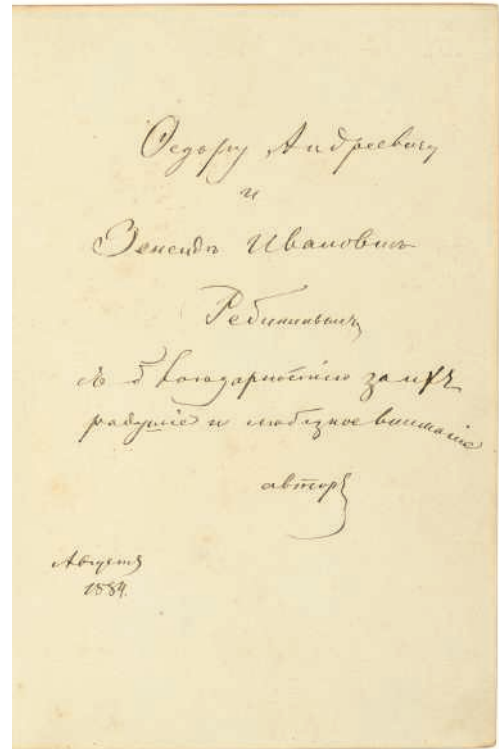 Ѳедору Андреевичу
и
Зенеидѣ Ивановнѣ
Ребининымъ
съ благодарностію за ихъ
радушіе и любезное вниманіе
авторъ
Августъ
1884.